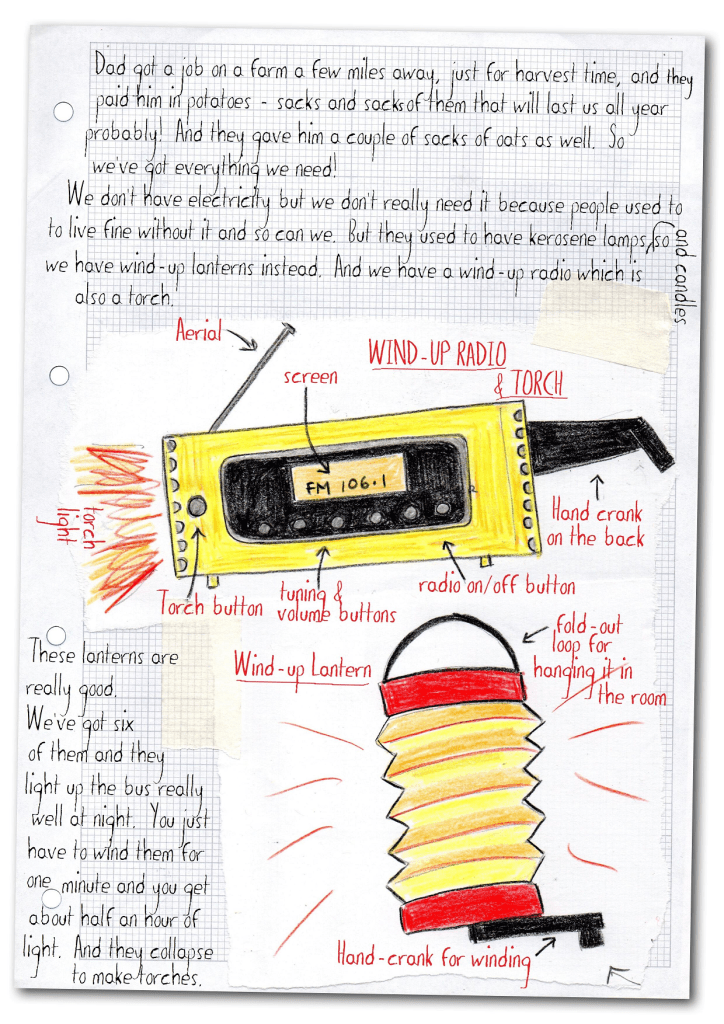 Dad got a job on a farm a few miles away, just for harvest time, and they
paid him in potatoes - sacks and sacks of them that will last us all year
probably! And they gave him a couple of sacks of oats as well. So
we've got everything we need!
We don't have electricity but we don't really need it because people used to
to live fine without it and so can we. But they used to have kerosene lamps, so
and candles
we have wind-up lanterns instead. And we have a wind-up radio which is
also a torch.
Aerial
WIND-UP RADIO
& TORCH
screen
FM 106.1
torch
light
Hand crank
on the back
Torch button
tuning &
volume buttons
radio on/off button
These lanterns are
really good.
We've got six
of them and they
light up the bus really
well at night. You just
have to wind them for
one minute and you get
about half an hour of
light. And they collapse
to make torches.
Wind-up Lantern
fold-out
loop for
hanging it in
the room
Hand-crank for winding